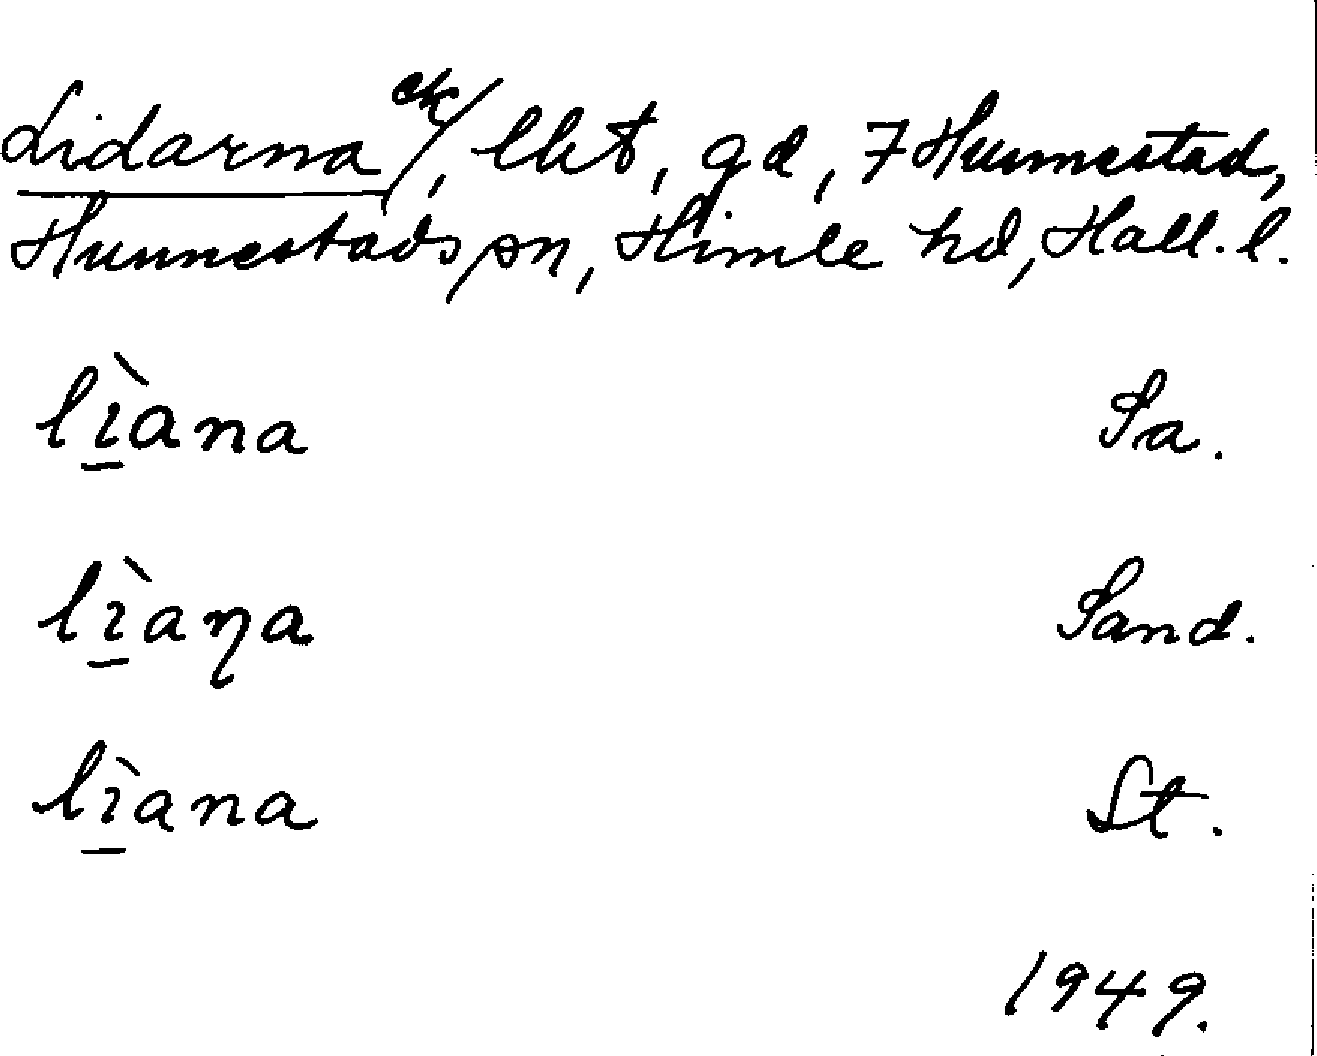 Lidarna ek/, lht, gd, 7 Hunnestad,
Hunnestads sn, Himle hd, Hall. l.
lìana Sa.
lìaɳa Sand.
lìana St.
1949.